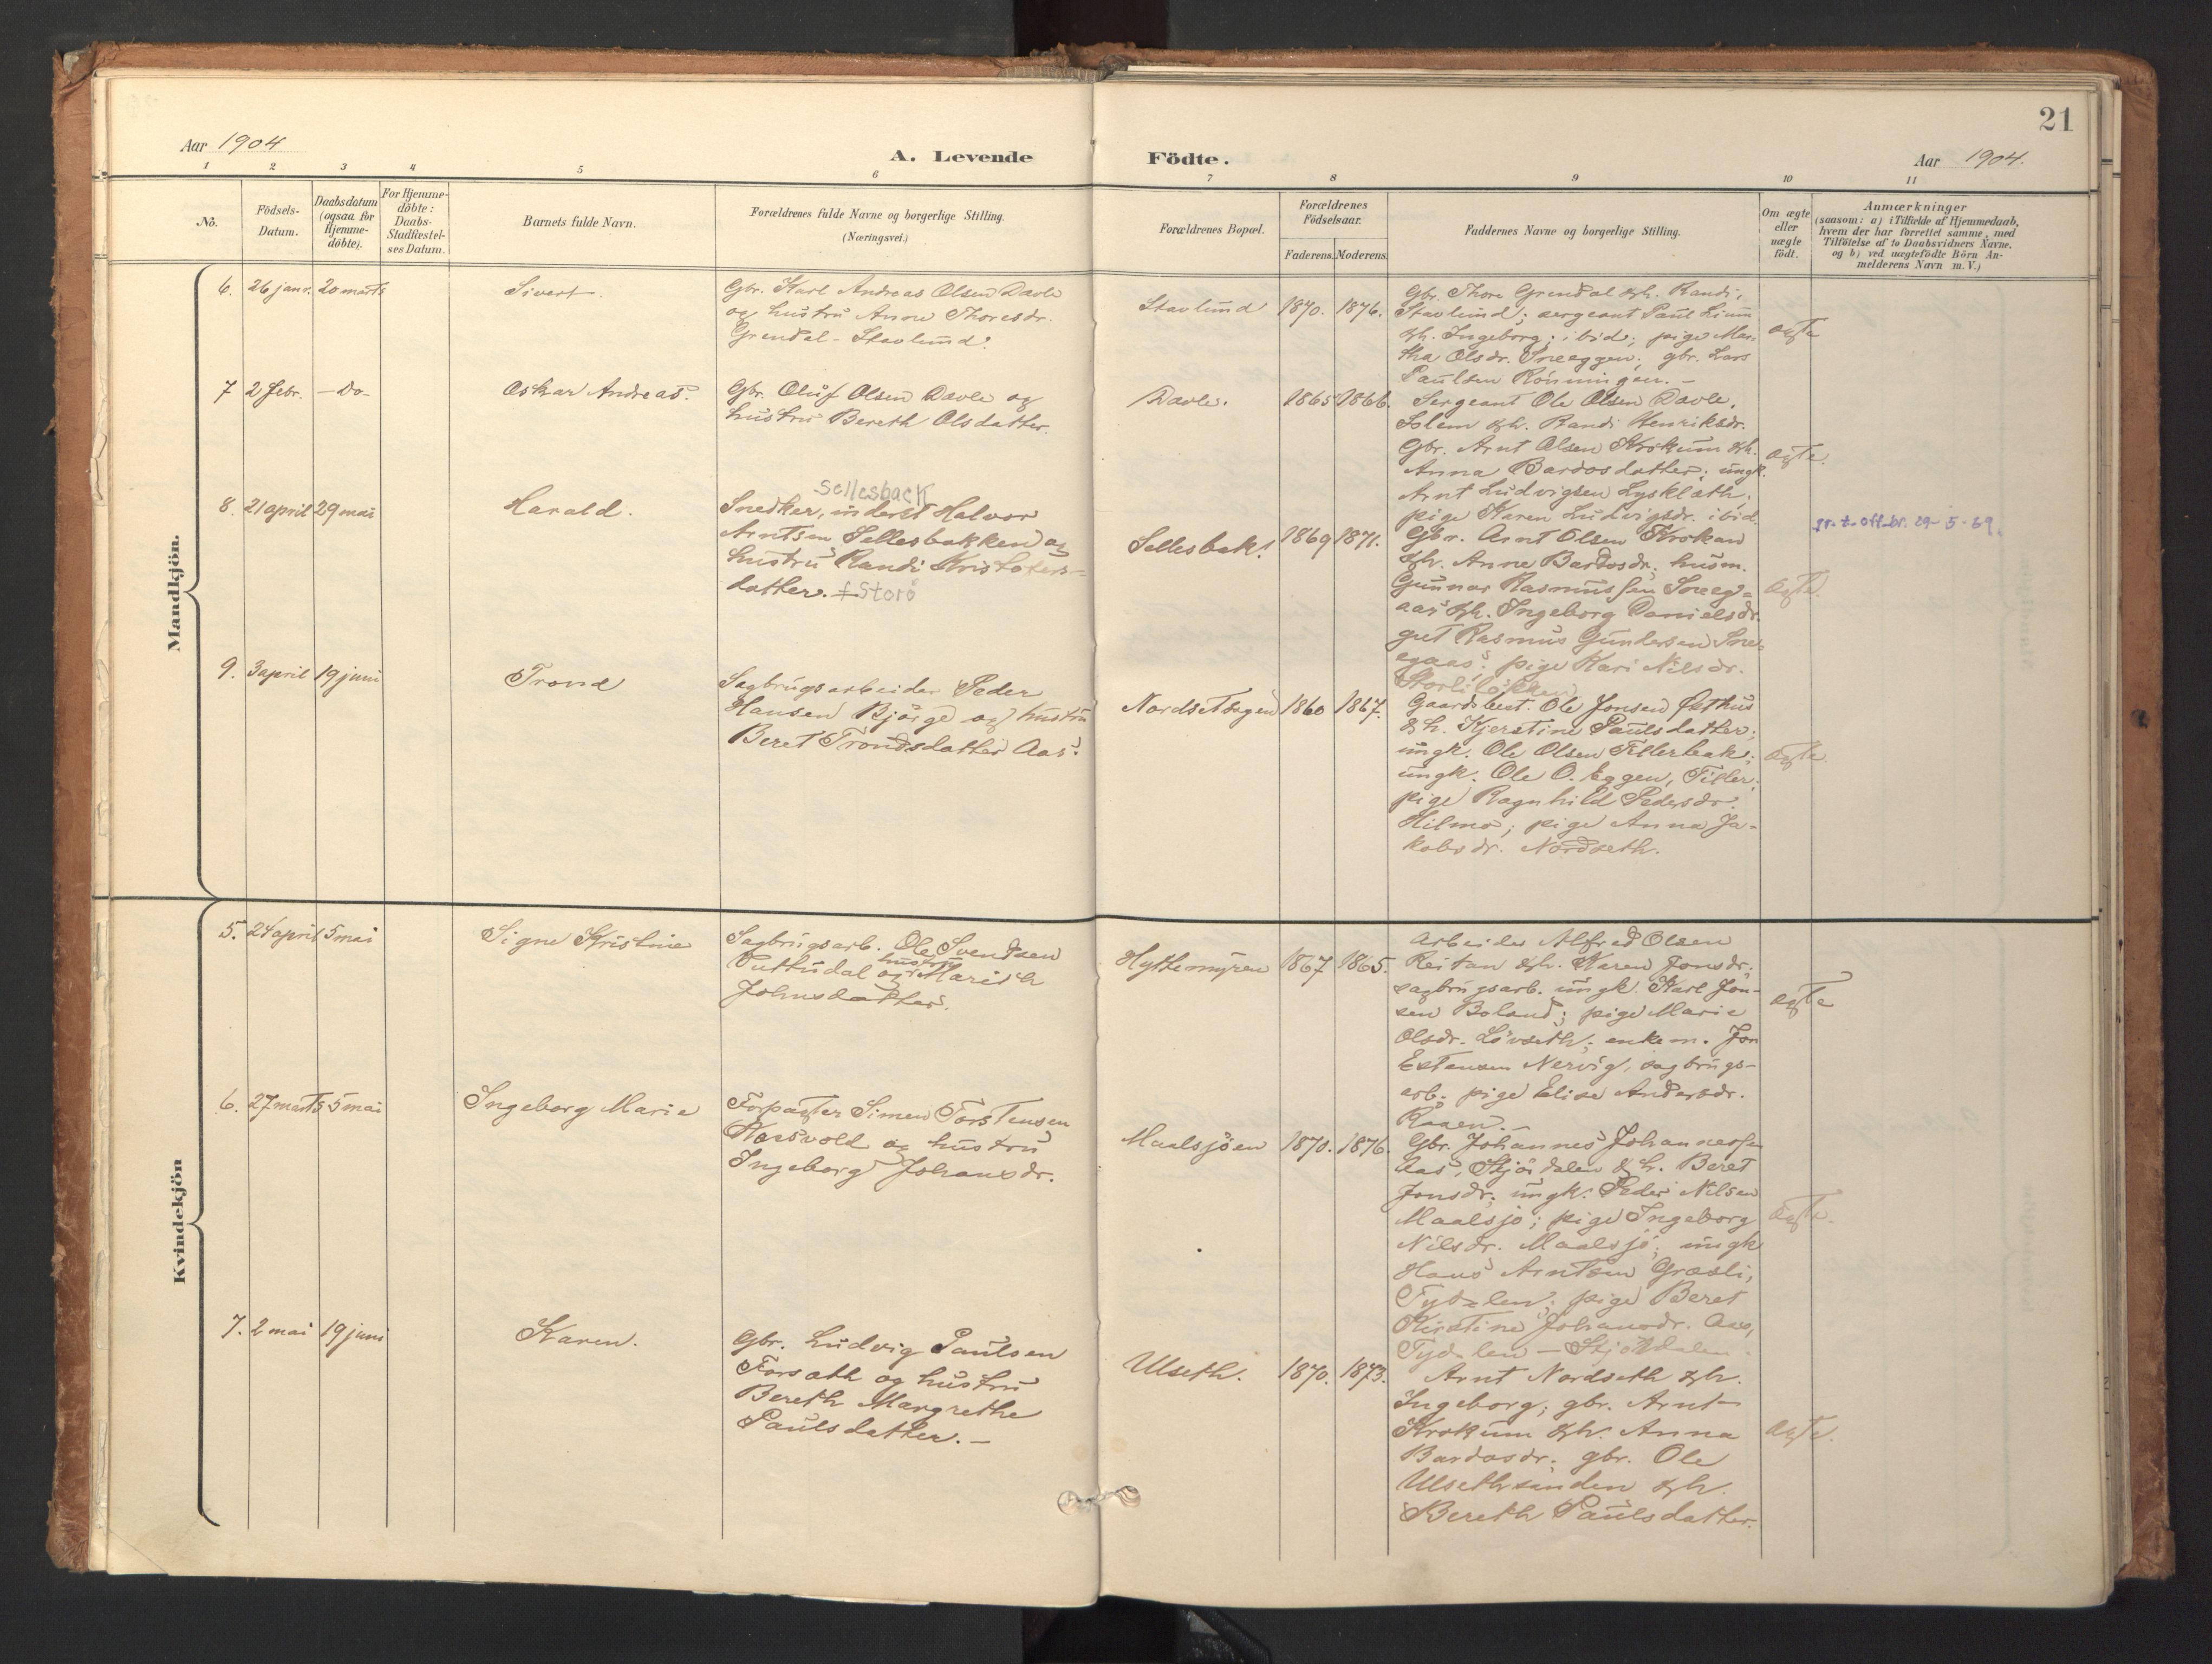 21
Aar 1904
A. Levende Födte.
Aar 1904.
1 2 3 4 5 6 7 8 9 10 11
No.
Födsels-
Datum.
Daabsdatum
(ogsaa for
Hjemme-
döbte).
For Hjemme-
döbte:
Daabs-
Stadfæstel-
ses Datum.
Barnets fulde Navn.
Forældrenes fulde Navne og borgerlige Stilling.
(Næringsvei.)
Forældrenes Bopæl.
Forældrenes
Födselsaar.
Faderens. Moderens.
Faddernes Navne og borgerlige Stilling.
Om ægte
eller
uægte
födt.
Anmærkninger
(saasom: a) i Tilfælde af Hjemmedaab,
hvem der har forrettet samme, med
Tilföielse af to Daabsvidners Navne,
og b) ved uægtefödte Börn An-
melderens Navn m. V.)
Mandkjön.
6. 26 janr. 20 marts
Sivert.
Gbr. Karl Andreas Olsen Davle
og hustru Anne Thoresdr.
Grendal - Stavlund.
Stavlund 1870. 1876.
Gbr. Thore Grendal & h. Randi,
Stavlund; sergeant Paul Lium
& h. Ingeborg; ibid; pige Mar-
tha Olsdr. Sneeggen; gbr. Lars
Paulsen Rönningen. -
ægte
7 2 febr. - Do -
Oskar Andreas.
Gbr. Oluf Olsen Davle og
hustru Bereth Olsdatter.
Davle. 1865 1866.
Sergeant Ole Olsen Davle,
Solem & h. Randi Henriksdr.
Gbr. Arnt Olsen Krokum & h.
Anna Bardosdatter; ungk.
Arnt Ludvigsen Lysklæth;
pige Karen Ludvigsdr. ibid.
ægte.
8. 21 april 29 mai
Harald.
Sellesback
Snedker, inderst Halvor
Arntsen Sellesbakken og
hustru Randi Kristofers-
datter. f Storö
Sellesbak. 1869 1871.
Gbr. Arnt Olsen Krokan
& h. Anne Bardosdr; husm.
Gunnar Rasmussen Sneeg-
aas & h. Ingeborg Danielsdr.
gut Rasmus Gundersen Sne-
egaas; pige Kari Nilsdr.
Storlilökken
ægte.
29-5-69.
9. 3 april 19 juni
Trond
Sagbrugsarbeider Peder
Hansen Bjørge og hustru
Beret Trondsdatter Aas.
Nordsethagen 1860 1867.
Gaardbest. Ole Jonsen Østhus
& h. Kjerstine Paulsdatter;
ungk. Ole Olsen Tillerbak;
ungk. Ole O. Eggen, Tiller;
pige Ragnhild Pedersdr.
Hilmo; pige Anna Ja-
kobsdr. Nordseth.
ægte.
Kvindekjön
5. 24 april 5 mai
Signe Kristine
Sagbrugsarb. Ole Svendsen
hustru
Puttudal og Marith
Johnsdatter.
Hyttemyren 1867 1865.
Arbeider Alfred Olsen
Reitan & h. Karen Jonsdr;
sagbrugsarb. ungk. Karl Jon-
sen Boland; pige Marie
Olsdr. Lövseth; enkem. Jon
Estensen Nervig, sagbrugs-
arb; pige Elise Andersdr.
Raaen. -
ægte
6. 27 marts 5 mai
Ingeborg Marie
Forpagter Simen Torstensen
Næsvold og hustru
Ingeborg Johansdr.
Maalsjöen 1870. 1876.
Gbr. Johannes Johannessen
Aas, Stjördalen & h. Beret
Jonsdr; ungk. Peder Nilsen
Maalsjo; pige Ingeborg
Nilsdr. Maalsjö; ungk
Hans Arntsen Græsli,
Tydalen; pige Beret
Kirstine Johansdr. Aas,
Tydalen - Stjördalen.
ægte.
7. 2 mai 19 juni
Karen.
Gbr. Ludvig Paulsen
Forsæth og hustru
Bereth Margrethe
Paulsdatter. -
Ulseth. 1870. 1873.
Arnt Nordseth & h.
Ingeborg; gbr. Arnt
Krokum & h. Anna
Bardosdr; gbr. Ole
Ulsethsanden & h.
Bereth Paulsdatter.
ægte.